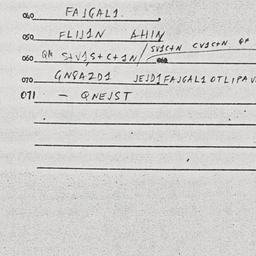 040 FAJGAL1.
050 FLIJ1N AHIM
060 QA S+VJS+C+1N/ SVIC+N CVIC+N QA
070 GNSA2D1 JEJD1FAJGAL1 OTLIPAV
071 - QNEJST